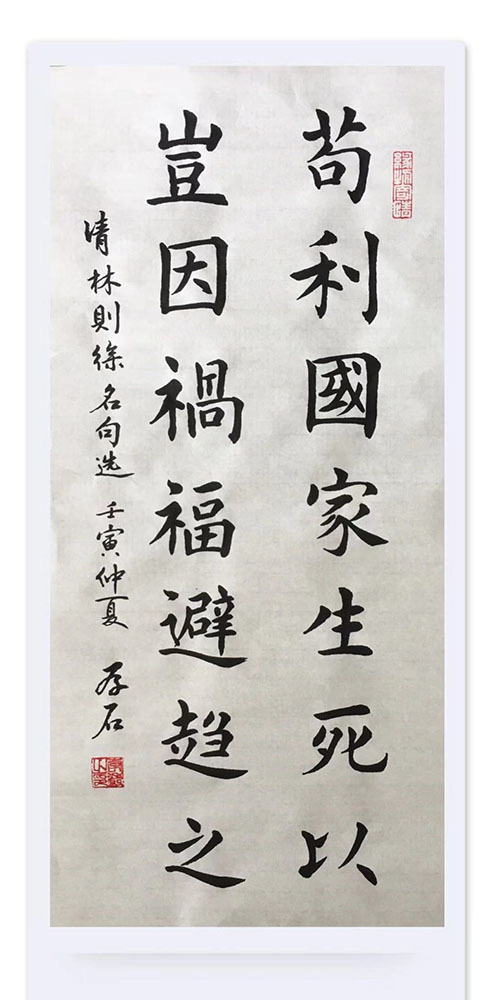 苟利國家生死以
豈因禍福避趨之
清林則徐名句选 壬寅仲夏 存石